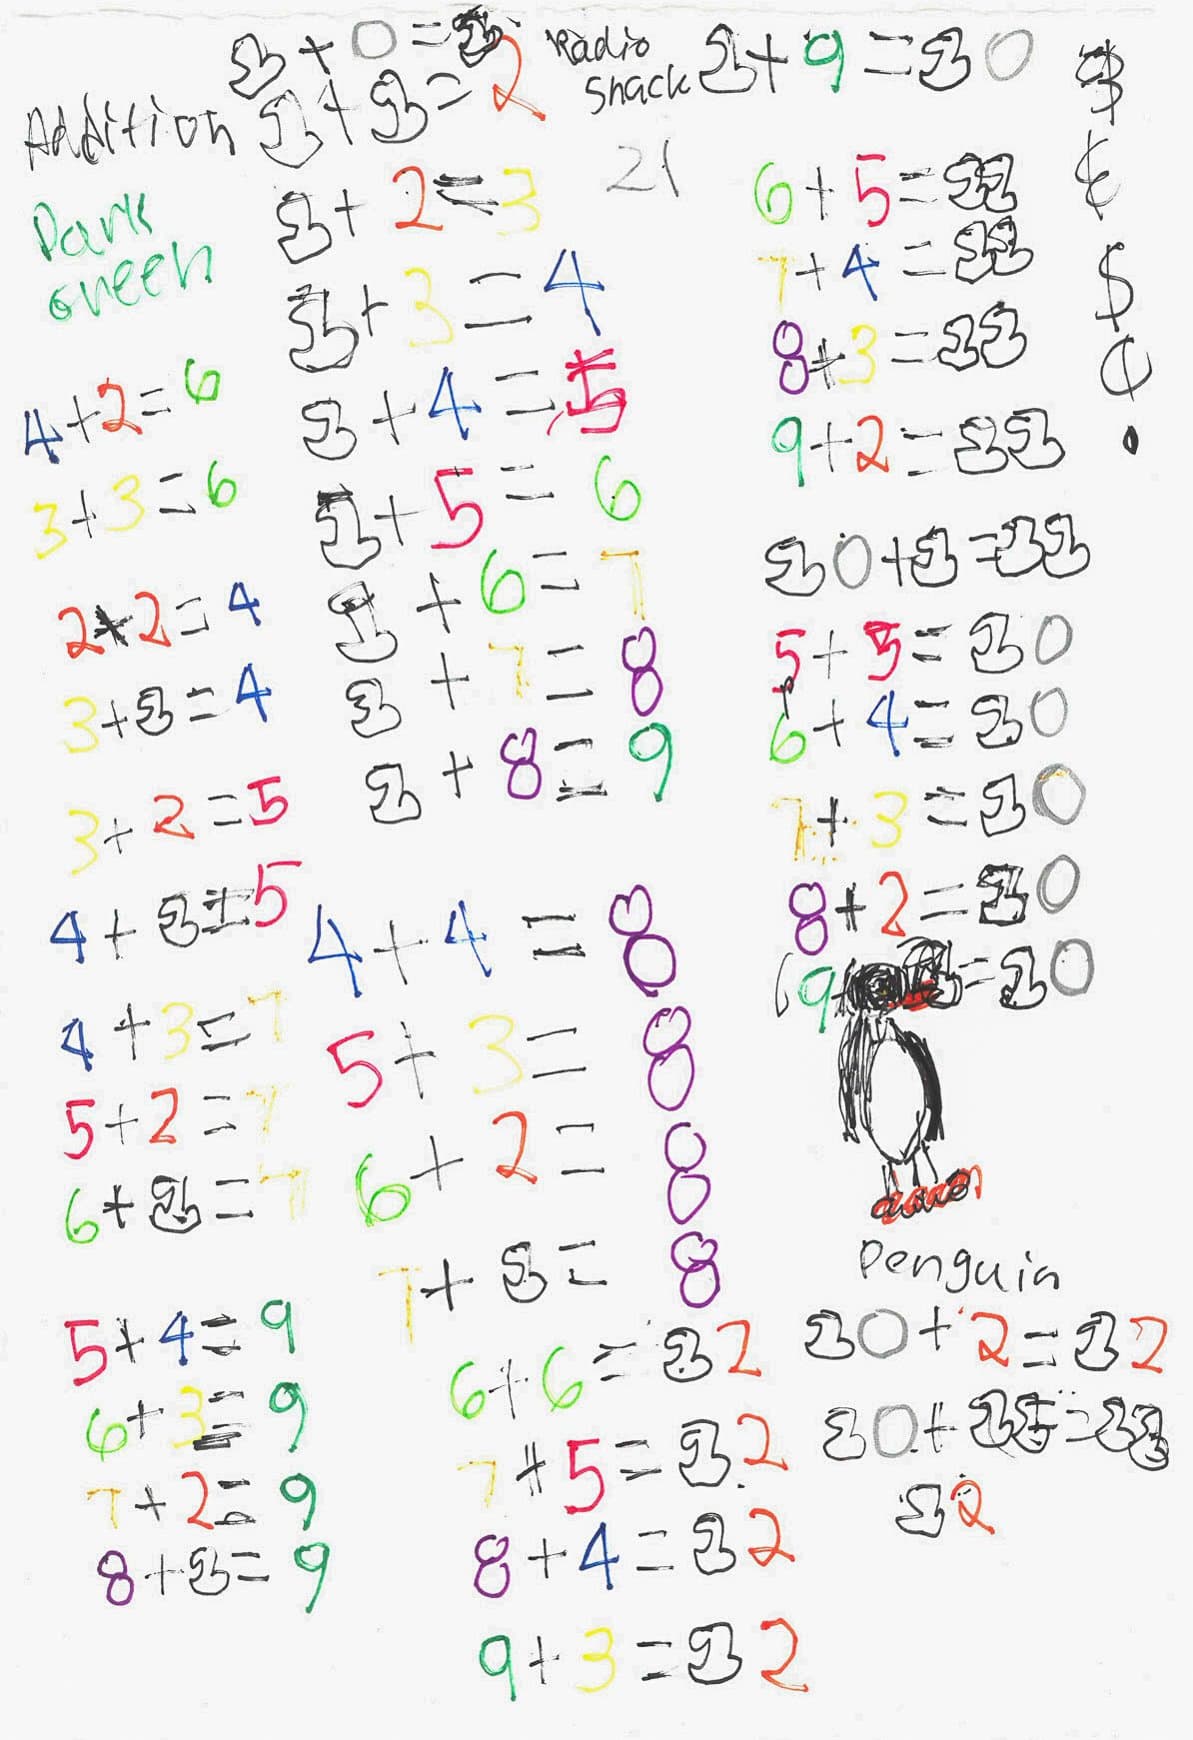 1+0=1
Radio
Shack
1+9=10
$
Addition
1+1=2
21
¢
Dark
Green
1+2=3
6+5=11
$
1+3=4
7+4=11
¢
4+2=6
1+4=5
8+3=11
3+3=6
1+5=6
9+2=11
2+2=4
1+6=7
10+1=11
3+1=4
1+7=8
5+5=10
3+2=5
1+8=9
6+4=10
4+1=5
7+3=10
4+4=8
8+2=10
4+3=7
5+3=8
9+1=10
5+2=7
6+2=8
6+1=7
7+1=8
Penguin
5+4=9
6+6=12
10+2=12
6+3=9
7+5=12
7+2=9
8+4=12
12
8+1=9
9+3=12